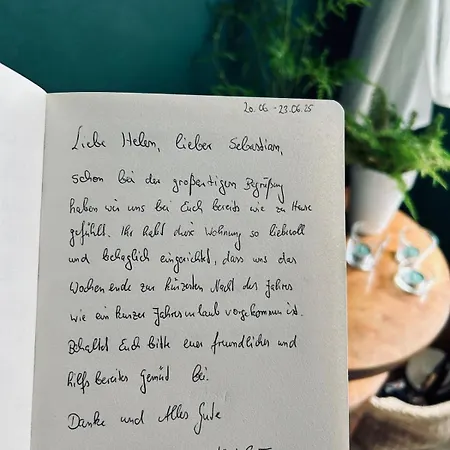 20.06 - 23.06.25
Liebe Helen, lieber Sebastian,
schon bei der großartigen Begrüßung
haben wir uns bei Euch bereits wie zu Hause
gefühlt. Ihr habt diese Wohnung so liebevoll
und behaglich eingerichtet, dass uns das
Wochenende zur kürzesten Nacht des Jahres
wie ein kurzer Jahresurlaub vorgekommen ist.
Behaltet Euch bitte euer freundliches und
hilfsbereites Gemüt bei.
Danke und Alles Gute